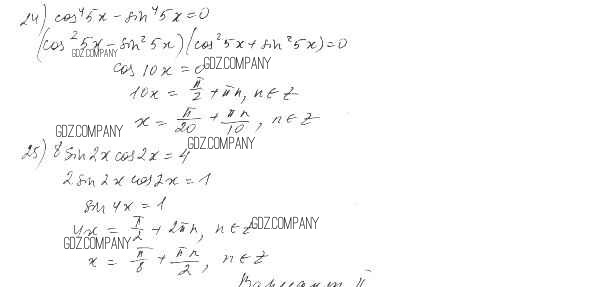 24) cos⁴5x − sin⁴5x = 0
(cos²5x − sin²5x)(cos²5x + sin²5x) = 0
GDZ.COMPANY
cos 10x = 0 GDZ.COMPANY
10x = π/2 + πn, n ∈ Z
x = π/20 + πn/10, n ∈ Z
GDZ.COMPANY
GDZ.COMPANY
25) 8 sin 2x cos 2x = 4
2 sin 2x cos 2x = 1
sin 4x = 1
4x = π/2 + 2πn, n ∈ Z GDZ.COMPANY
GDZ.COMPANY
x = π/8 + πn/2, n ∈ Z